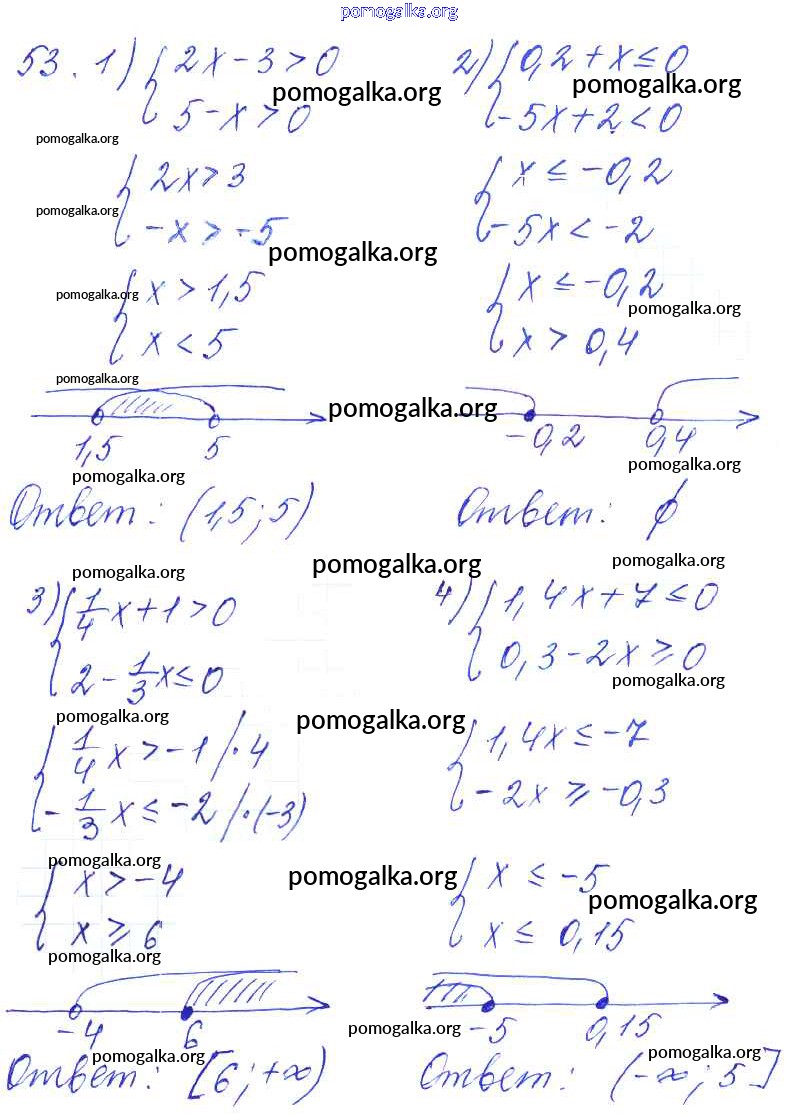 pomogalka.org
53. 1) { 2x - 3 > 0
5 - x > 0
pomogalka.org
pomogalka.org
{ 2x > 3
- x > -5
pomogalka.org
pomogalka.org
{ x > 1,5
x < 5
pomogalka.org
pomogalka.org
1,5 5
pomogalka.org
pomogalka.org
Ответ: (1,5; 5)
2) { 0,2 + x ≤ 0
-5x + 2 < 0
pomogalka.org
{ x ≤ -0,2
-5x < -2
{ x ≤ -0,2
x > 0,4
pomogalka.org
-0,2 0,4
pomogalka.org
Ответ: ∅
pomogalka.org
pomogalka.org
pomogalka.org
3) { 1/4 x + 1 > 0
2 - 1/3 x ≤ 0
pomogalka.org
pomogalka.org
{ 1/4 x > -1 / · 4
- 1/3 x ≤ -2 / · (-3)
pomogalka.org
{ x > -4
x ≥ 6
pomogalka.org
pomogalka.org
-4 6
pomogalka.org
Ответ: [6; +∞)
4) { 1,4x + 7 ≤ 0
0,3 - 2x ≥ 0
pomogalka.org
{ 1,4x ≤ -7
-2x ≥ -0,3
{ x ≤ -5
x ≤ 0,15
pomogalka.org
-5 0,15
pomogalka.org
pomogalka.org
Ответ: (-∞; 5]